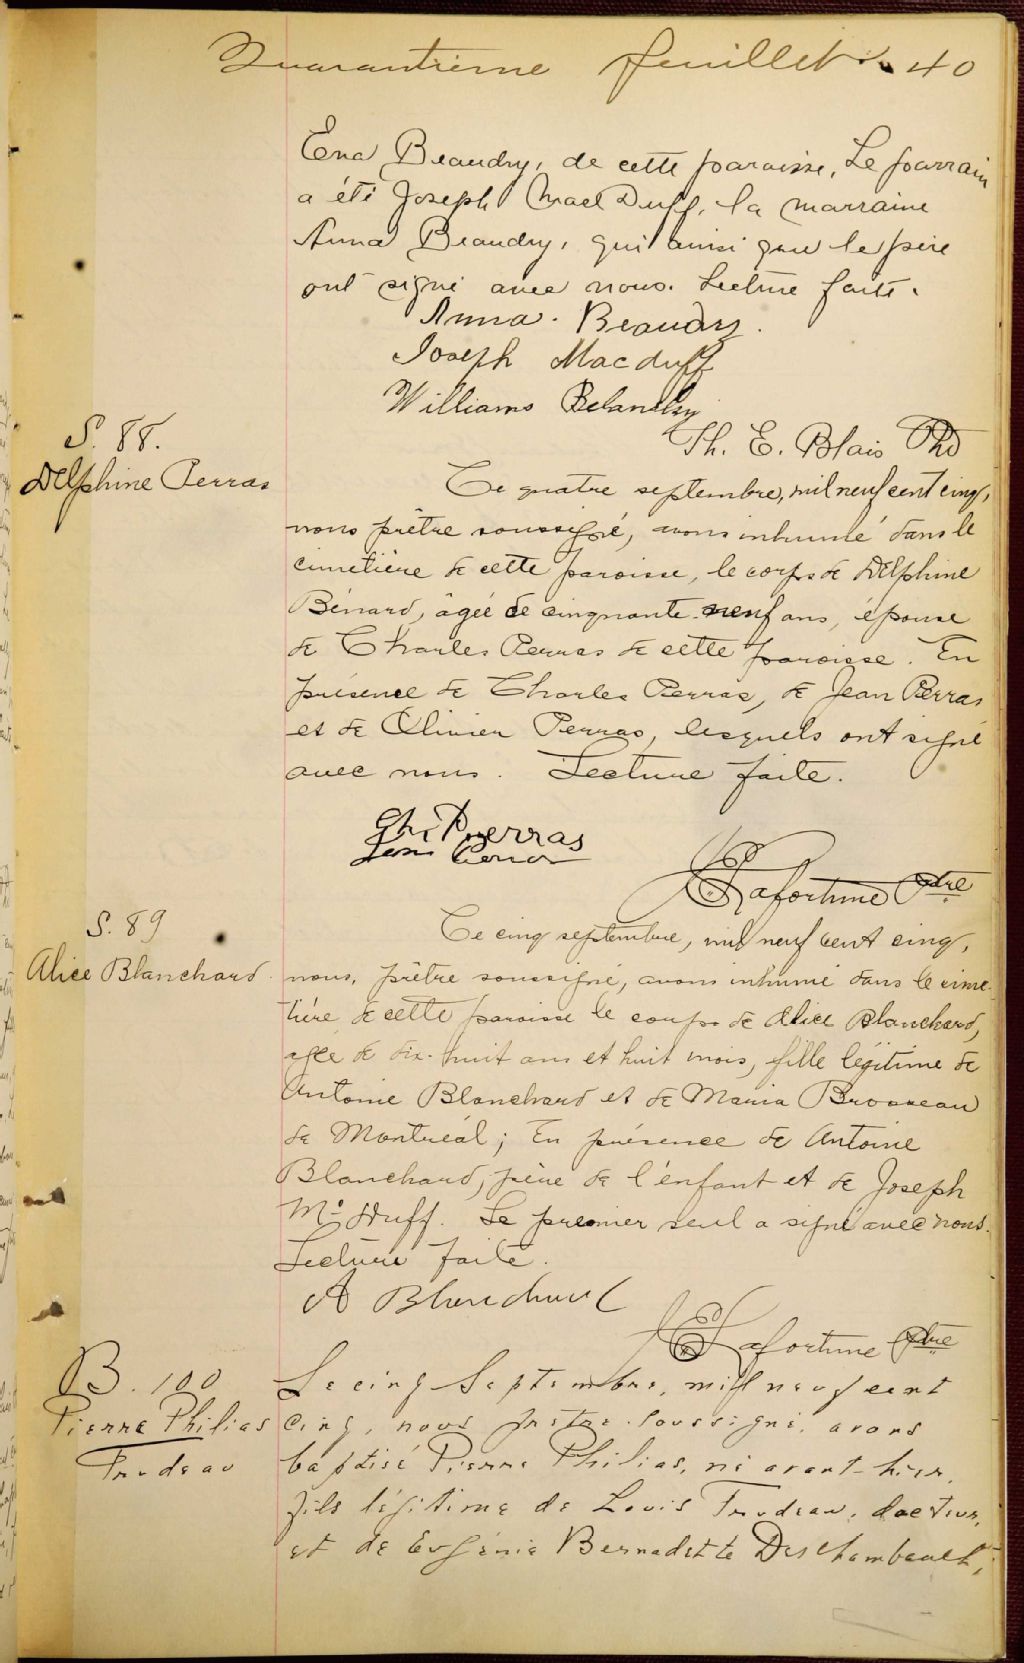 Quarantième feuillet. 40
Ena Beaudry, de cette paroisse, Le parrain
a été Joseph MacDuff, la marraine
Anna Beaudry, qui ainsi que le père
ont signé avec nous. Lecture faite.
Anna. Beaudry.
Joseph Macduff
Williams
Th. E. Blais Ptre
S. 88.
Delphine Perras
Ce quatre septembre, mil neuf cent cinq,
nous prêtre soussigné, avons inhumé dans le
cimetière de cette paroisse, le corps de Delphine
Bénard, âgée de cinquante-neuf ans, épouse
de Charles Perras de cette paroisse. En
présence de Charles Perras, de Jean Perras
et de Olivier Perras, lesquels ont signé
avec nous. Lecture faite.
Chs Perras
Jean Perras
Lafortune Ptre
S. 89
Alice Blanchard
Ce cinq septembre, mil neuf cent cinq,
nous, prêtre soussigné, avons inhumé dans le cime-
tière de cette paroisse le corps de Alice Blanchard,
agée de dix-huit ans et huit mois, fille légitime de
Antoine Blanchard et de Maria Brosseau
de Montréal; En présence de Antoine
Blanchard, père de l'enfant et de Joseph
Mc Duff. Le premier seul a signé avec nous.
Lecture faite.
A Blanchard
Lafortune Ptre
B. 100
Pierre Philias
Trudeau
Le cinq Septembre, mil neuf cent
cinq, nous prêtre soussigné, avons
baptisé Pierre Philias, né avant-hier,
fils légitime de Louis Trudeau, docteur,
et de Eugénie Bernadette Deschambault,